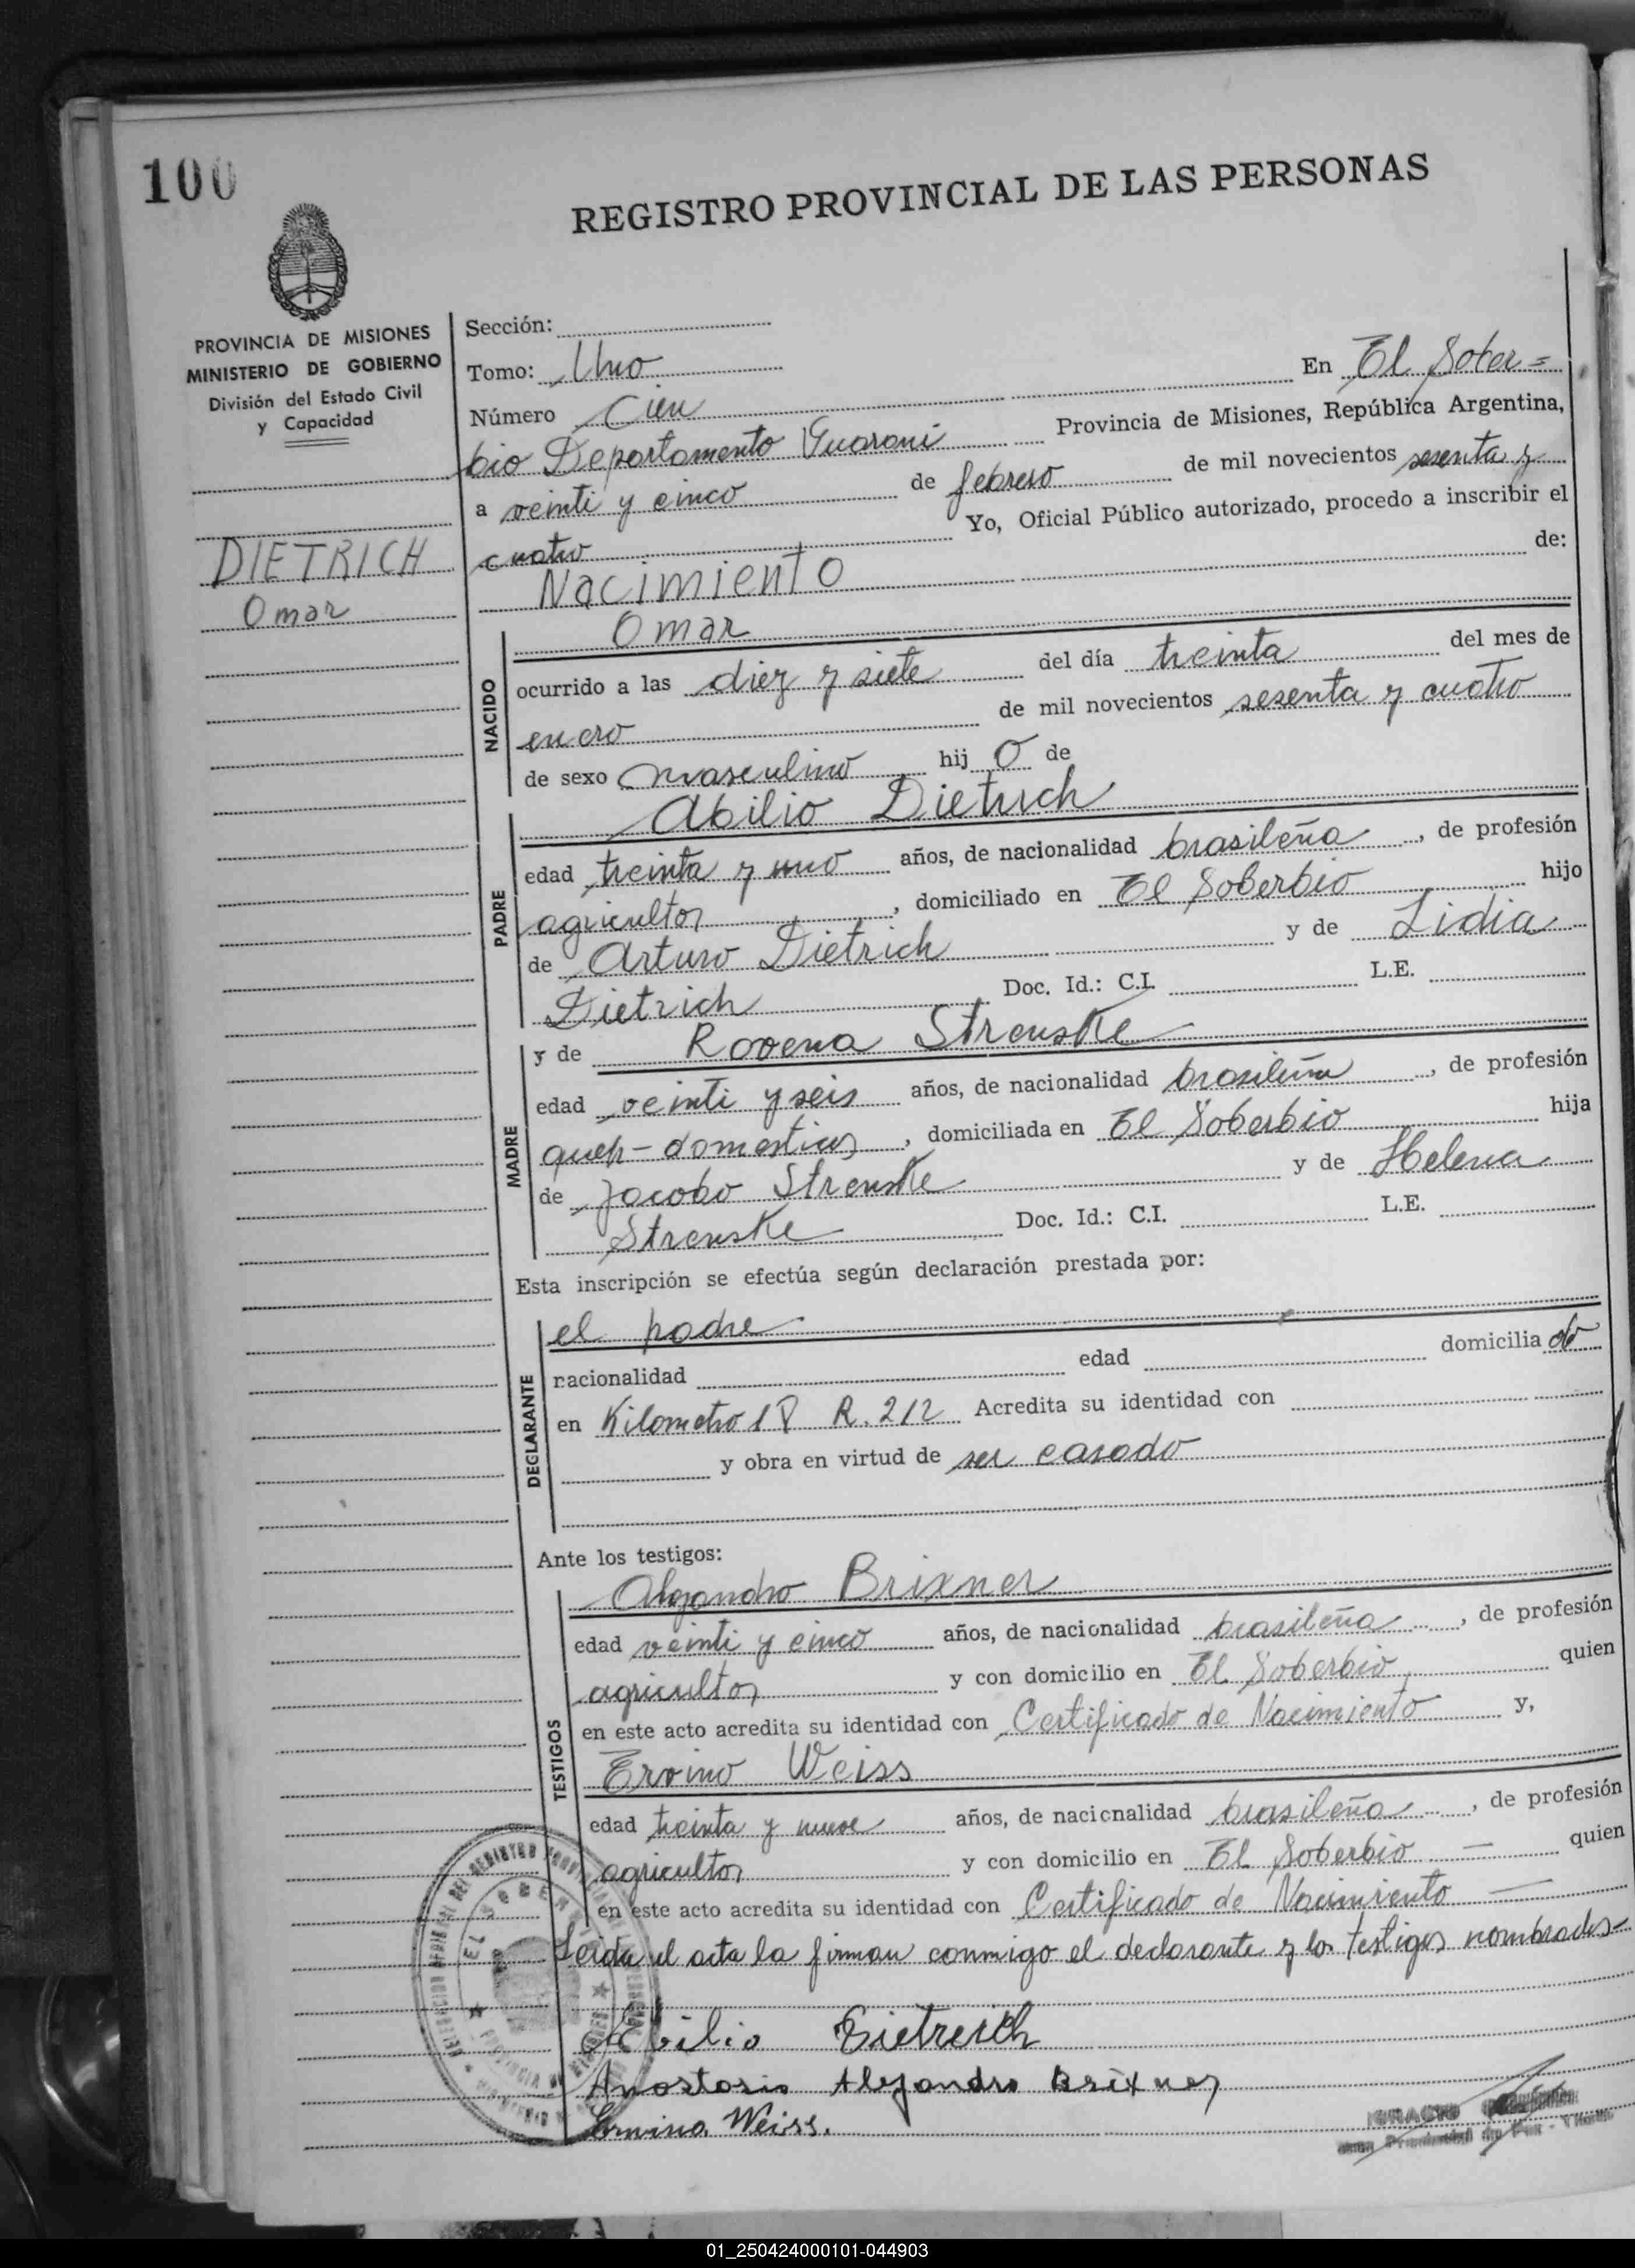 100
REGISTRO PROVINCIAL DE LAS PERSONAS
PROVINCIA DE MISIONES
MINISTERIO DE GOBIERNO
División del Estado Civil
y Capacidad
DIETRICH
Omar
Sección:
Tomo: Uno
Número Cien En El Sober=
bio Departamento Guarani Provincia de Misiones, República Argentina,
a veinti y cinco de febrero de mil novecientos sesenta y
cuatro Yo, Oficial Público autorizado, procedo a inscribir el
Nacimiento de:
NACIDO
Omar
ocurrido a las diez y siete del día treinta del mes de
enero de mil novecientos sesenta y cuatro
de sexo masculino hij o de
PADRE
Abilio Dietrich
edad treinta y uno años, de nacionalidad brasileña, de profesión
agricultor, domiciliado en El Soberbio hijo
de Arturo Dietrich y de Lidia
Dietrich Doc. Id.: C.I. L.E.
MADRE
y de Rovena Strenske
edad veinti y seis años, de nacionalidad brasileña, de profesión
queh-domesticos, domiciliada en El Soberbio hija
de Jacobo Strenske y de Helena
Strenske Doc. Id.: C.I. L.E.
Esta inscripción se efectúa según declaración prestada por:
DECLARANTE
el padre
nacionalidad edad domicilia do
en Kilometro 18 R. 212 Acredita su identidad con
y obra en virtud de ser casado
Ante los testigos:
TESTIGOS
Alejandro Brixner
edad veinti y cinco años, de nacionalidad brasileña, de profesión
agricultor y con domicilio en El Soberbio quien
en este acto acredita su identidad con Certificado de Nacimiento y,
Ervino Weiss
edad treinta y nueve años, de nacionalidad brasileña, de profesión
agricultor y con domicilio en El Soberbio — quien
en este acto acredita su identidad con Certificado de Nacimiento —
Leida el acta la firman conmigo el declarante y los testigos nombrados
Abilio Dietreich
Anostosio Alejandro Brixner
Ervino Weiss.
01_250424000101-044903